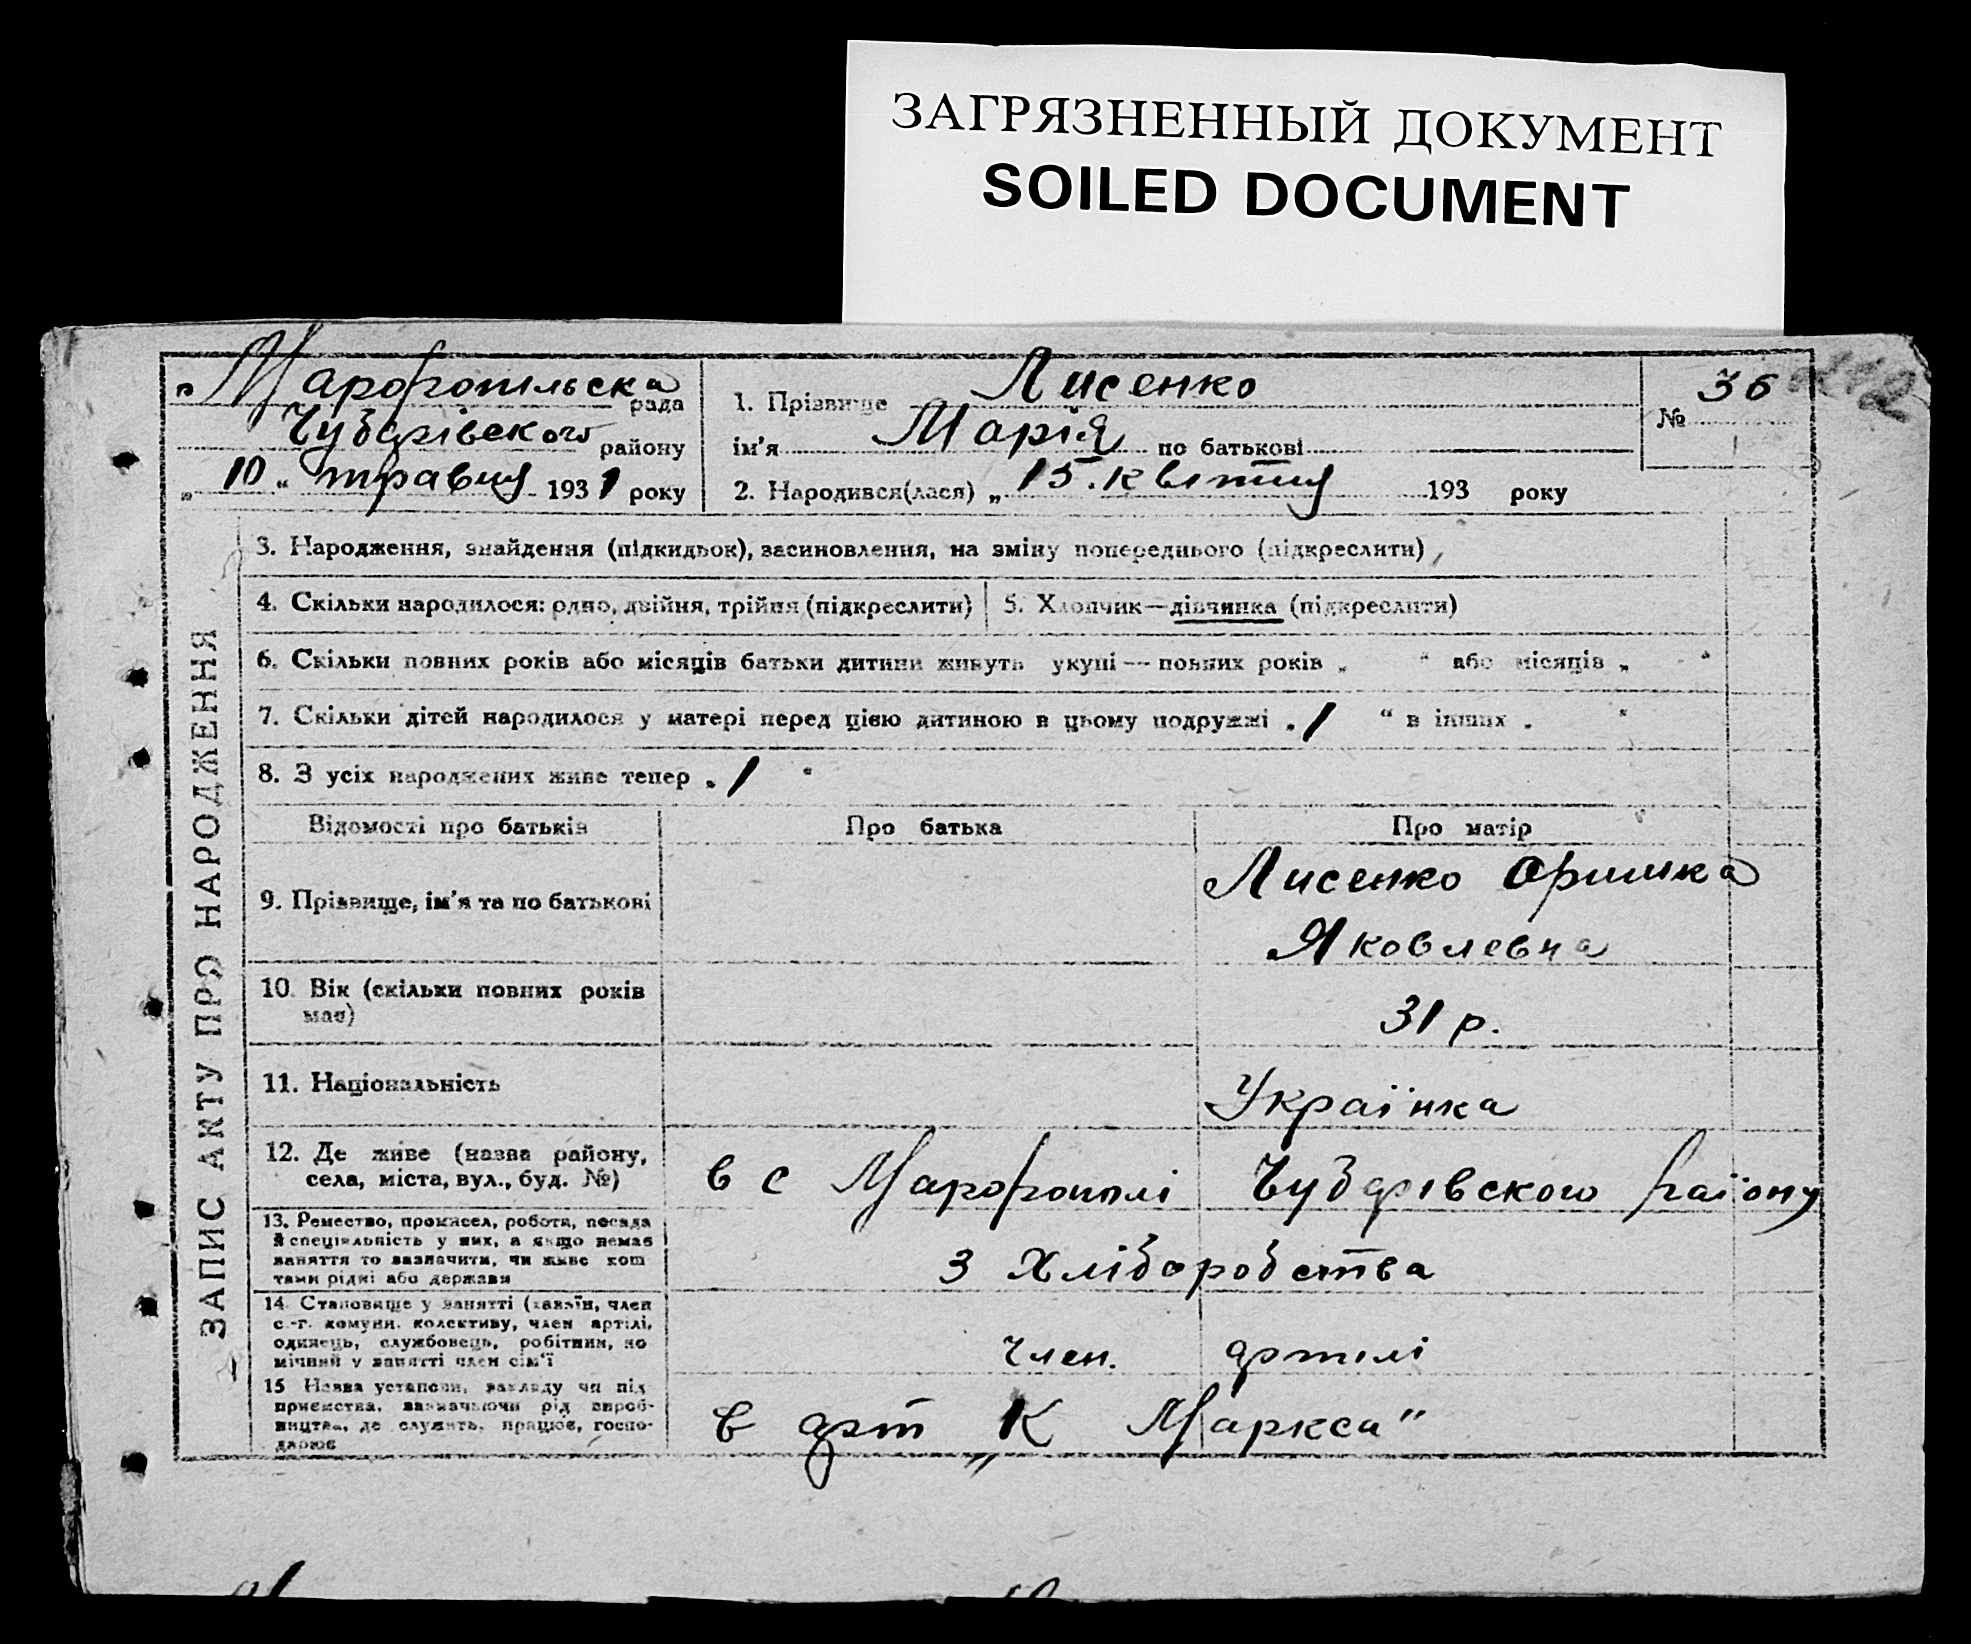 ЗАГРЯЗНЕННЫЙ ДОКУМЕНТ
SOILED DOCUMENT
Марфопільска рада
Чубарівского району
„ 10 “ травня 1931 року
1. Прізвище Лисенко
ім'я Марія по батькові
2. Народився(лася) „ 15. квітня 193 року
№ 36
ЗАПИС АКТУ ПРО НАРОДЖЕННЯ
3. Народження, знайдення (підкидьок), засиновлення, на зміну попереднього (підкреслити)
4. Скільки народилося: одно, двійня, трійня (підкреслити)
5. Хлопчик—дівчинка (підкреслити)
6. Скільки повних років або місяців батьки дитини живуть укупі — повних років „ “ або місяців „ “
7. Скільки дітей народилося у матері перед цією дитиною в цьому подружжі „ 1 “ в інших „ “
8. З усіх народжених живе тепер „ 1 “
Відомості про батьків Про батька Про матір
9. Прізвище, ім'я та по батькові
Лисенко Оришка
Яковлевна
10. Вік (скільки повних років
має)
31 р.
11. Національність
Українка
12. Де живе (назва району,
села, міста, вул., буд. №)
в с Марфополі Чубарівского району
13. Ремество, промисел, робота, посада
й спеціяльність у них, а якщо немає
заняття то зазначити, чи живе кош
тами рідні або держави
З Хліборобства
14. Становище у занятті (хазяїн, член
с.-г. комуни, колективу, член артілі,
одинець, службовець, робітник, по
мічний у занятті член сім'ї
Член. артілі
15 Назва установи, закладу чи під
приємства, зазначаючи рід вироб-
ництва, де служить, працює, госпо-
дарює
в арт „К Маркса"